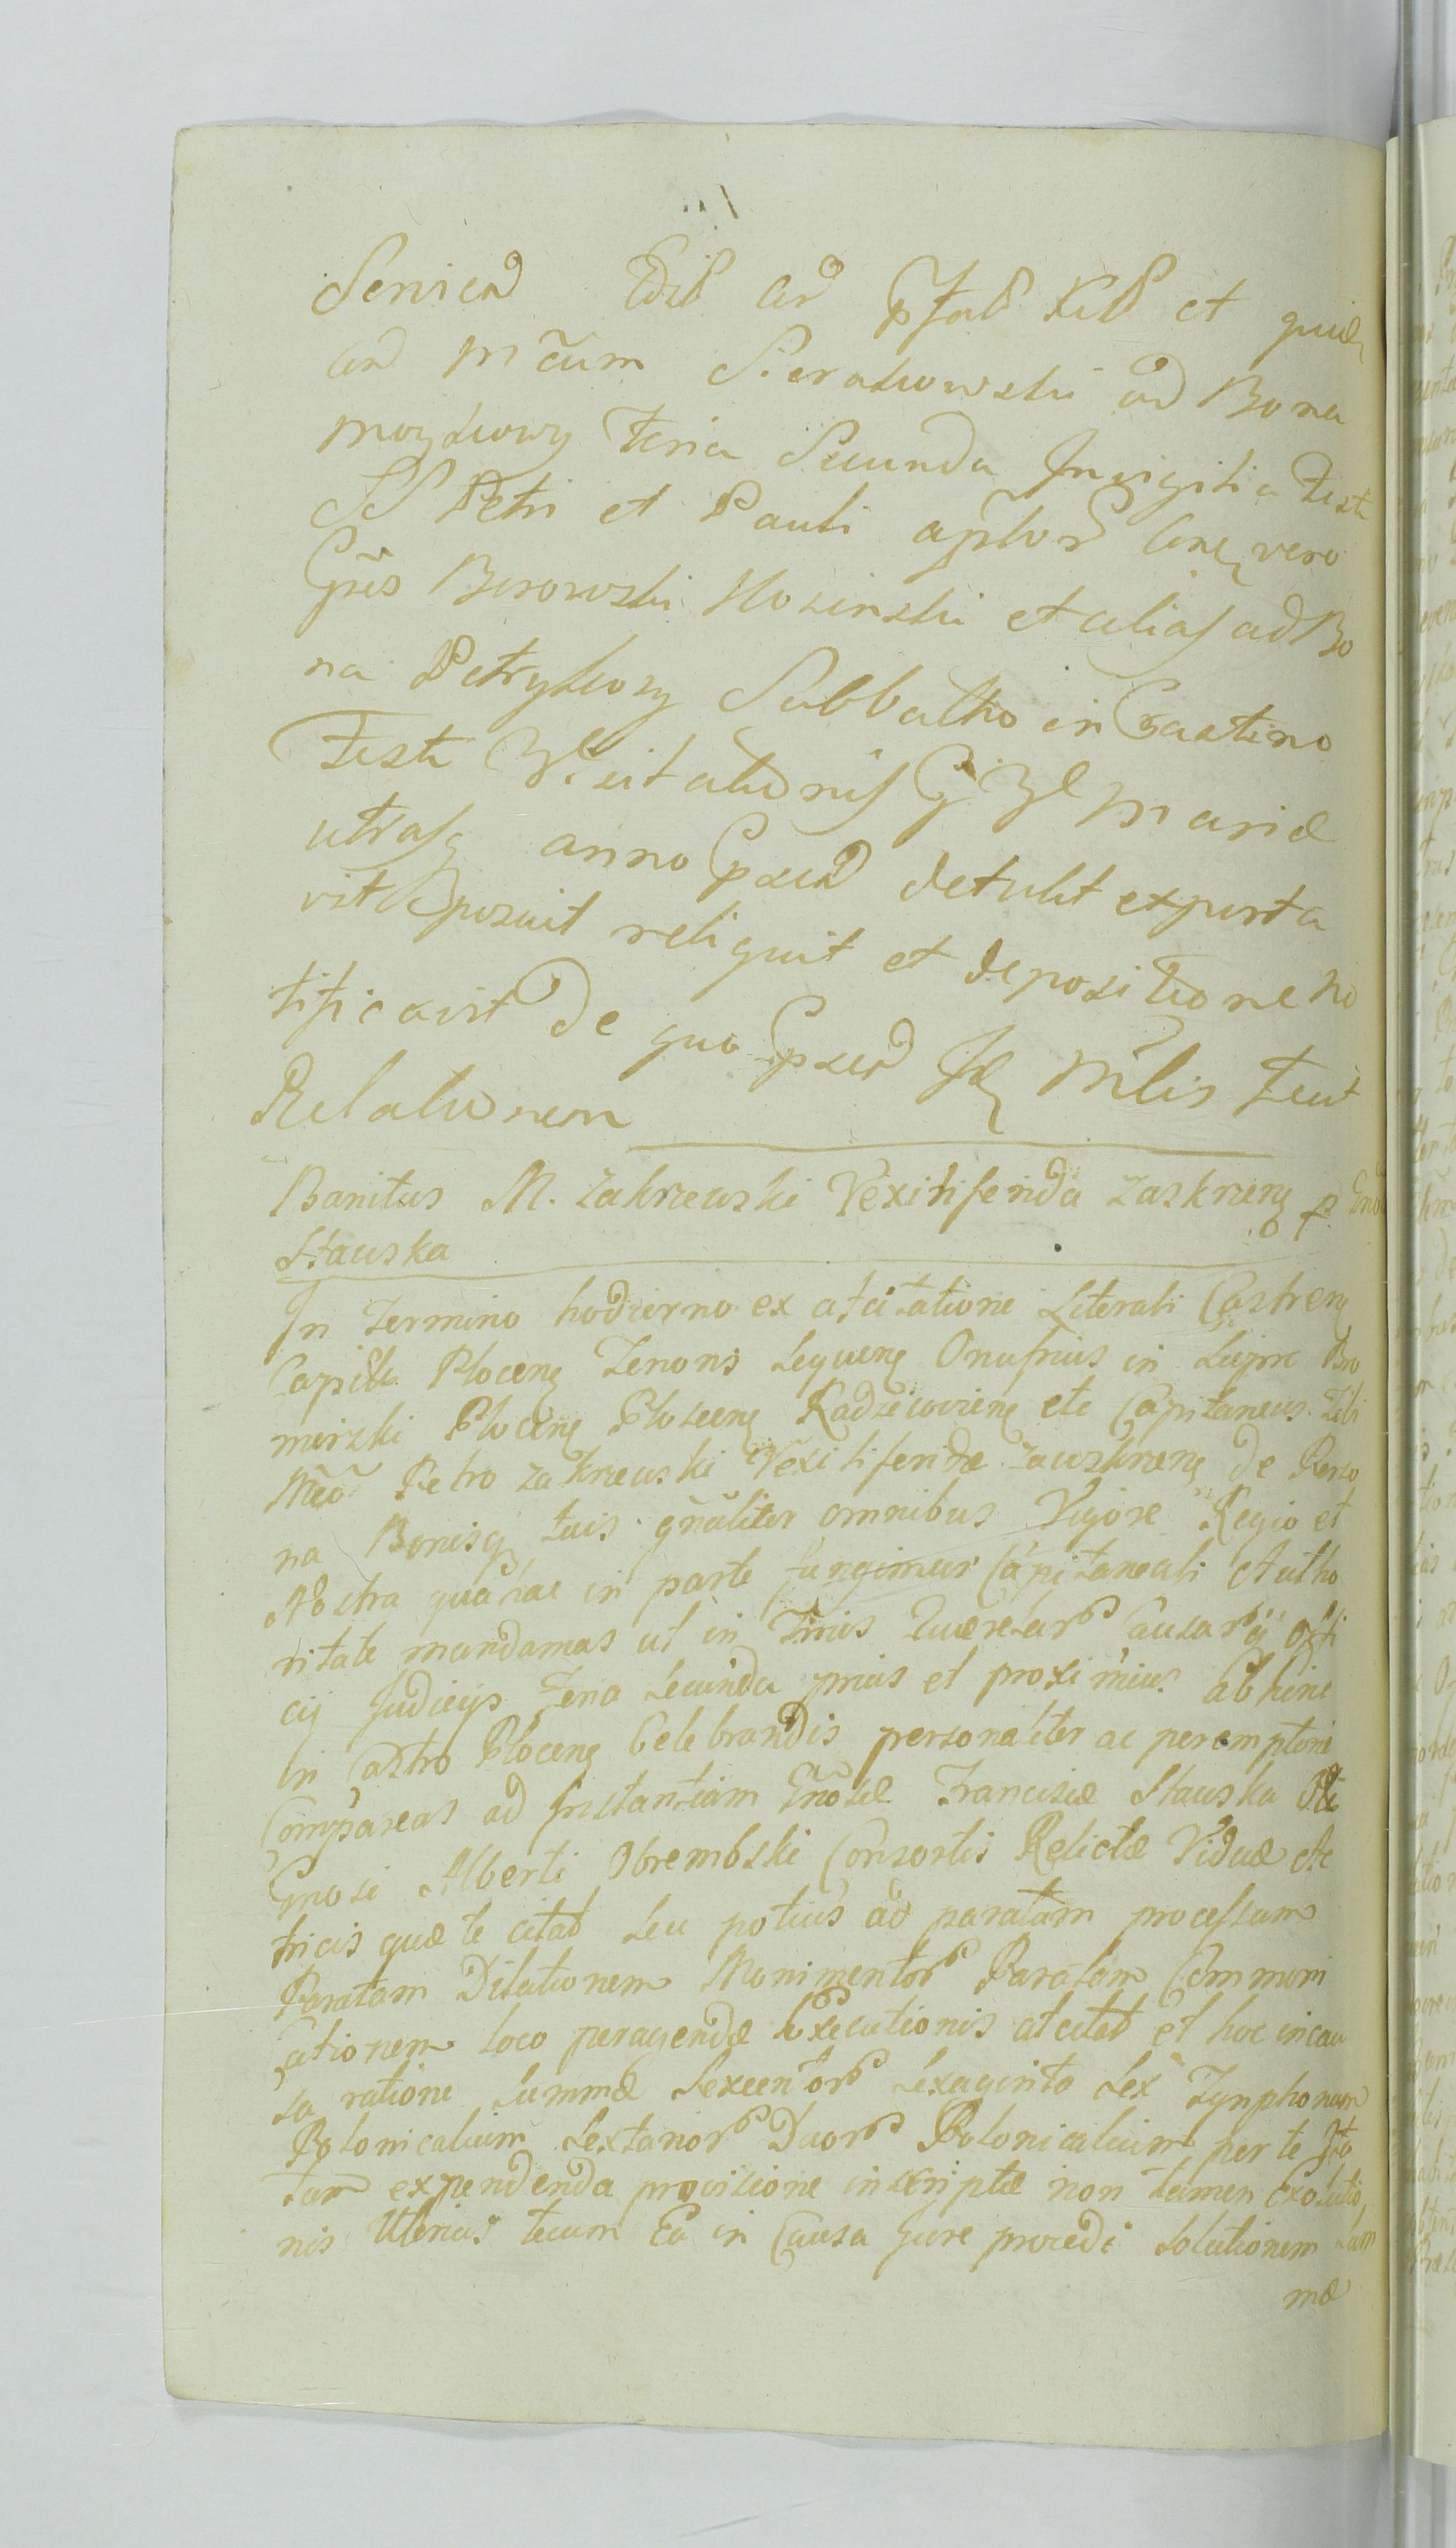 et quidē
ad M̃cum Sierakowski ad Bona
Moykowy Feria Secunda In vigilia Festi
SS Petri et Pauli vero
Gñs Borowski et alias ad Bo
na Petrykozy Sabbatho in Crastino
Festi Visitationis Mariæ
utrasq anno detulit exporta
vit posuit reliquit et depositione no
tificavit de quo Mĩlis fecit
Relationem
Banitus M. Zakrzewski Vexiliferida Zaskrzenę
Stawska
In Termino hodierno ex atcitatione Literali Castrenę
Capĩtli Plocenę Tenoris Sequenę Onufrius in Liepie Bro
mirski Plocenę Ploscenę Radzieiovienę etc Capitaneus Tibi
Mẽo Petro Zakrzewski Vexiliferidæ Zawskrzenę de Perso
na Bonisq tuis gñaliter omnibus Vigore Regio et
Nostra qua hac in parte fungimur Capitaneali Autho
ritate mandamus ut in Tñis Querelarū Causarq offi
cij Judicijs Feria Secunda prius et proximius abhinc
in Castro Plocenę Celebrandis personaliter ac peremptorie
Compareas ad Instantiam Gñosæ Franciscæ Stawska Oli
Gnosi Alberti Obrembski Consortis Relictæ Viduæ Ac
tricis quæ te citat seu potius ad paratam processum
Paratam Dilationem Monimentorū Paratam Communi
cationem loco peragendæ Executionis atcitat et hoc in cau
sa ratione Summæ Sexcentorū Sexaginta Sex Tynphonum
Polonicalium Sextanorū Duorū Polonicalium per te
tam expendenda provisione inscriptæ non tamen Exolutio
nis Ulterius tecum Ea in Causa Jure procedi Solutionem Sum
mæ